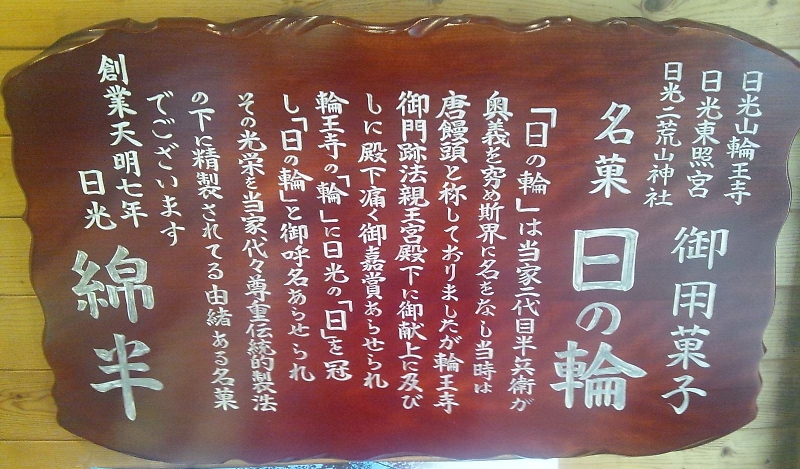 日光山輪王寺
日光東照宮
日光二荒山神社
御用菓子
名菓
日の輪
「日の輪」は当家二代目半兵衛が
奥義を究め斯界に名をなし当時は
唐饅頭と称しておりましたが輪王寺
御門跡法親王宮殿下に御献上に及び
しに殿下痛く御嘉賞あらせられ
輪王寺の「輪」に日光の「日」を冠
し「日の輪」と御呼名あらせられ
その光栄を当家代々尊重伝統的製法
の下に精製されてる由緒ある名菓
でございます
創業天明七年
日光
綿半